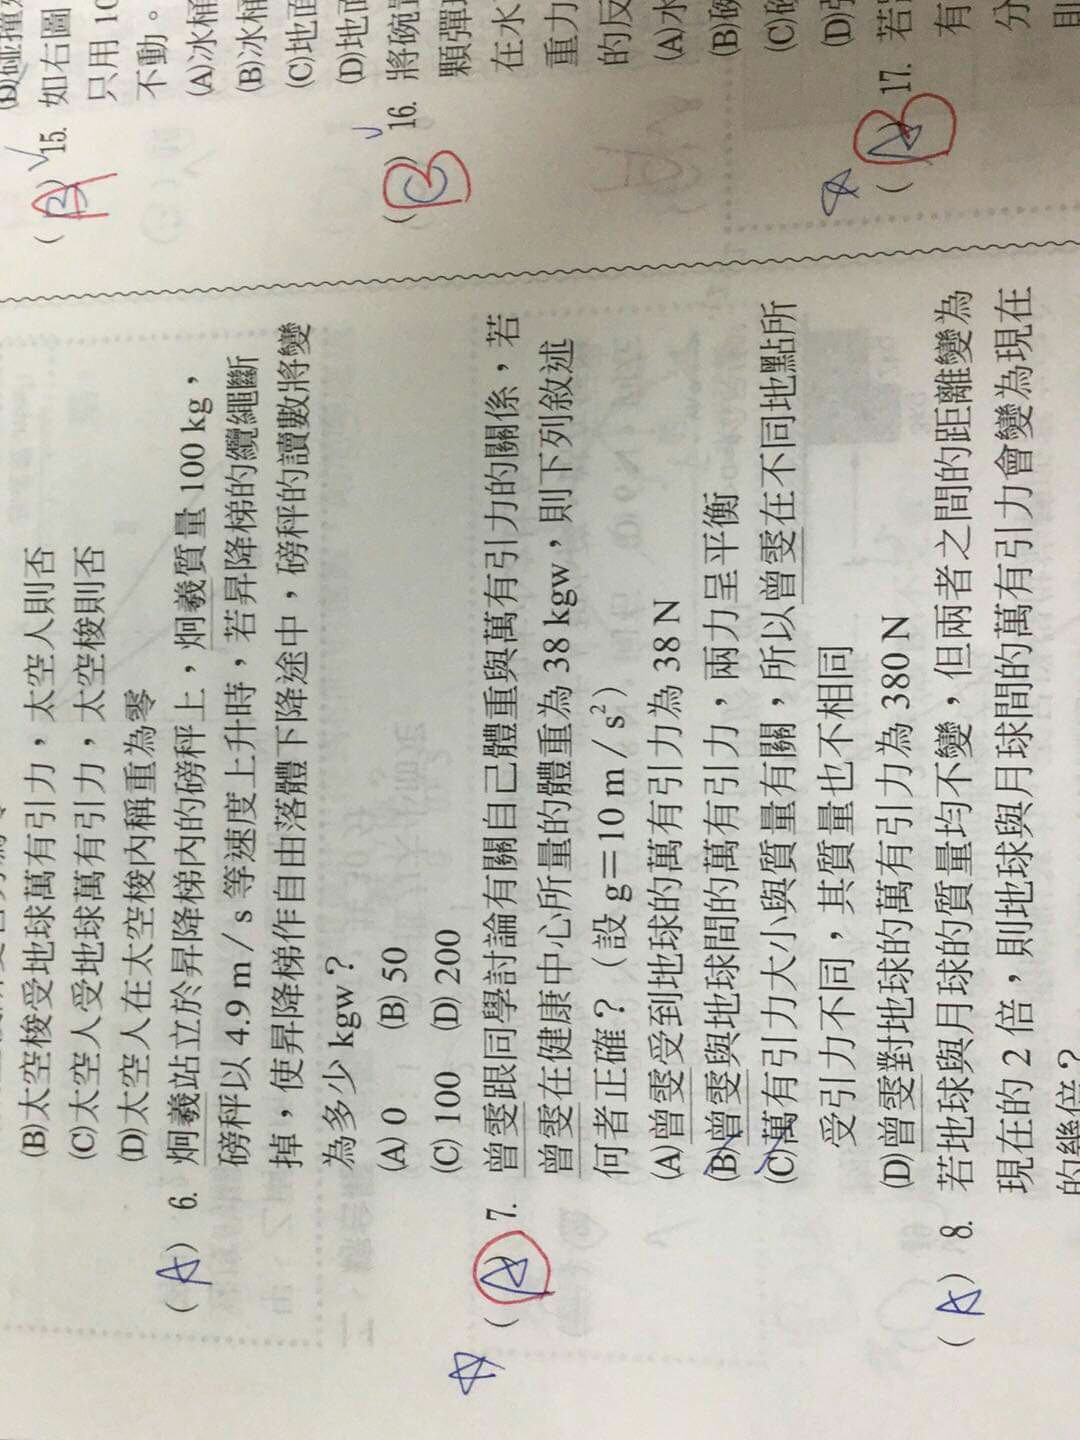 (B)太空梭受地球萬有引力，太空人則否
(C)太空人受地球萬有引力，太空梭則否
(D)太空人在太空梭內稱重為零
(A) 6. 炯羲站立於昇降梯內的磅秤上，炯羲質量 100 kg，
磅秤以 4.9 m／s 等速度上升時，若昇降梯的纜繩斷
掉，使昇降梯作自由落體下降途中，磅秤的讀數將變
為多少 kgw？
(A) 0 (B) 50
(C) 100 (D) 200
(A) 7. 曾雯跟同學討論有關自己體重與萬有引力的關係，若
曾雯在健康中心所量的體重為 38 kgw，則下列敘述
何者正確？（設 g＝10 m／s²）
(A)曾雯受到地球的萬有引力為 38 N
(B)曾雯與地球間的萬有引力，兩力呈平衡
(C)萬有引力大小與質量有關，所以曾雯在不同地點所
受引力不同，其質量也不相同
(D)曾雯對地球的萬有引力為 380 N
(A) 8. 若地球與月球的質量均不變，但兩者之間的距離變為
現在的 2 倍，則地球與月球間的萬有引力會變為現在
的幾倍？
(D)碰撞
15. 如右圖
只用 10
不動。
(A)冰桶
(B)冰桶
(C)地面
(D)地
(B) 16. 將碗
顆彈
在水
重力
的反
(A)水
(B)
(C)
(D)
(B) 17. 若
有
分
則